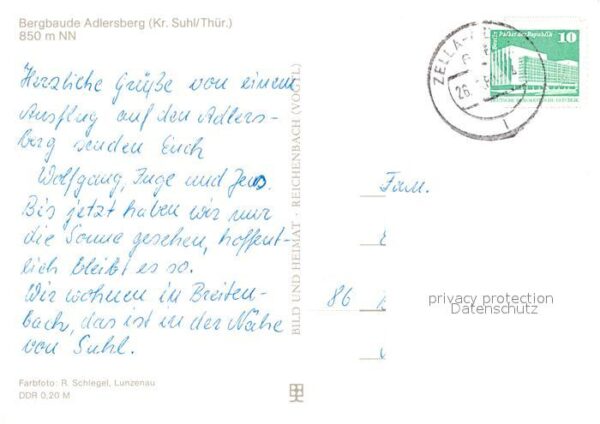 Bergbaude Adlersberg (Kr. Suhl/Thür.)
850 m NN
Herzliche Grüße von einem
Ausflug auf den Adlers-
berg senden Euch
Wolfgang, Inge und Jens.
Bis jetzt haben wir nur
die Sonne gesehen, hoffent-
lich bleibt es so.
Wir wohnen in Breiten-
bach, das ist in der Nähe
von Suhl.
Farbfoto: R. Schlegel, Lunzenau
DDR 0,20 M
BILD UND HEIMAT · REICHENBACH (VOGTL)
10
Palast der Republik
ZELLA-
26.
Fam.
86
privacy protection
Datenschutz